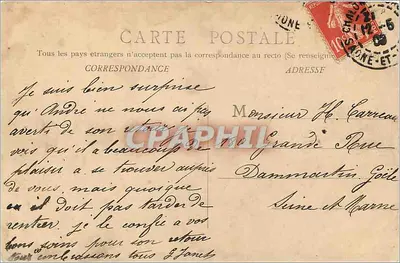 CARTE POSTALE
Tous les pays étrangers n'acceptent pas la correspondance au recto (Se renseigner
CORRESPONDANCE
ADRESSE
Je suis bien surprise
qu'André ne nous ai pas
averti de son
vois qu'il a beaucoup de
plaisir a se trouver auprès
de vous, mais quoique
il doit pas tarder de
rentrer, je le confie a vos
bons soins pour son retour
embrassons tous
Monsieur H. Carreau
Grande Rue
Dammartin Goële
Seine et Marne
CPAPHIL